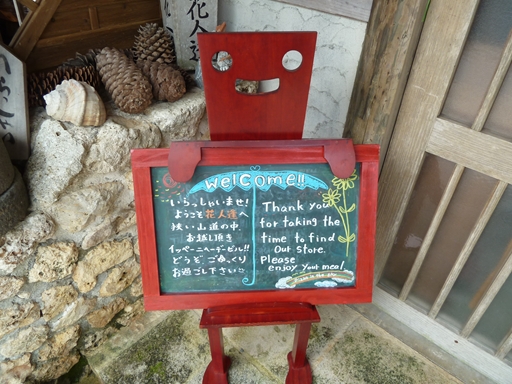 花人
welcome!!
いらっしゃいませ!
ようこそ花人逢へ
狭い山道の中
お越し頂き
イッペーニヘーデービル!!
どうぞ、ごゆっくり
お過ごし下さい
Thank you
for taking the
time to find
our store.
Please
enjoy your meal